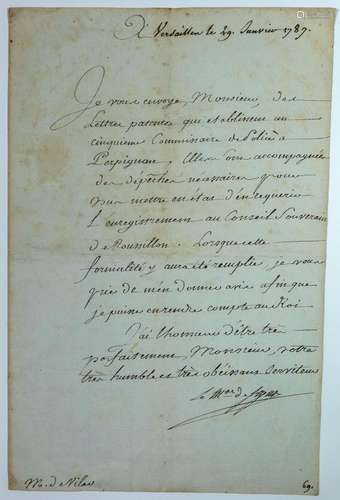 A Versailles le 29. Janvier 1787.
Je vous envoye, Monsieur, des
Lettres patentes qui etablissent un
cinquieme Commissaire de Police à
Perpignan. Elles sont accompagnées
des dépêches necessaires pour
vous mettre en état d'en requerir
l'enregistrement au Conseil Souverain
de Roussillon. Lorsque cette
formalité y aura été remplie, je vous
prie de m'en donner avis afin que
je puisse en rendre compte au Roi
J'ai l'honneur d'être très
parfaitement, Monsieur, votre
très humble et très obéissant serviteur
Le M.al de Segur
M. de Vilar
69.